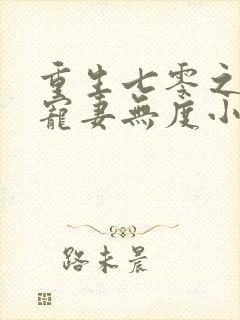 重生七零之
寵妻無度小
路未晨